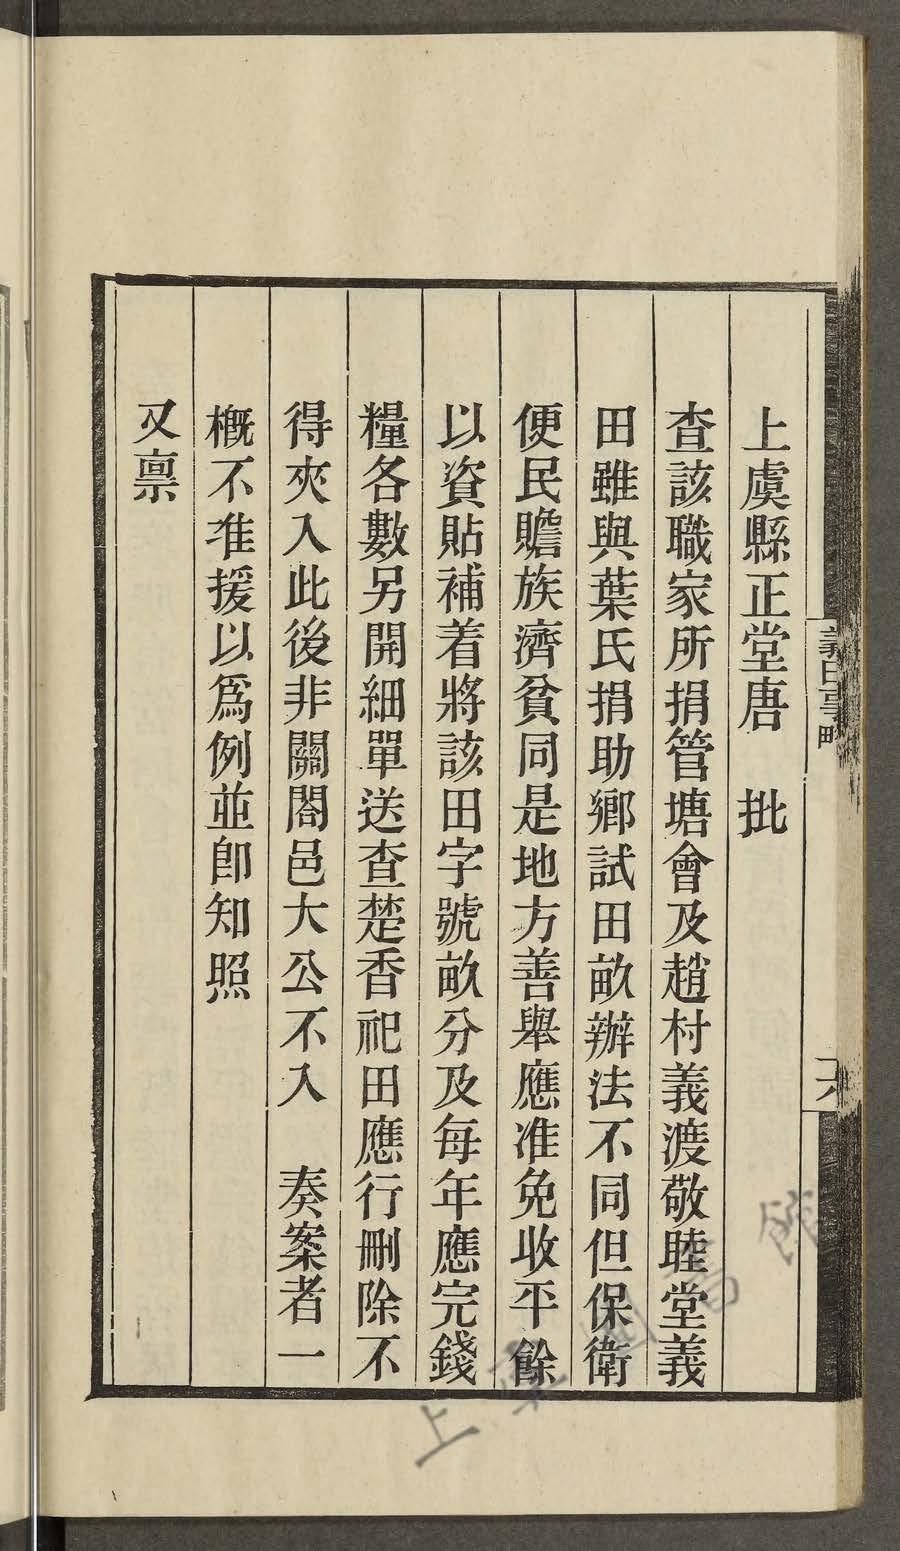 上虞縣正堂唐　批
查該職家所捐管塘會及趙村義渡敬睦堂義
田雖與葉氏捐助鄉試田畝辦法不同但保衛
便民贍族濟貧同是地方善舉應准免收平餘
以資貼補着將該田字號畝分及每年應完錢
糧各數另開細單送查楚香祀田應行刪除不
得夾入此後非關閤邑大公不入　奏案者一
概不准援以爲例並卽知照
又禀
義田事略
六
上海圖書館